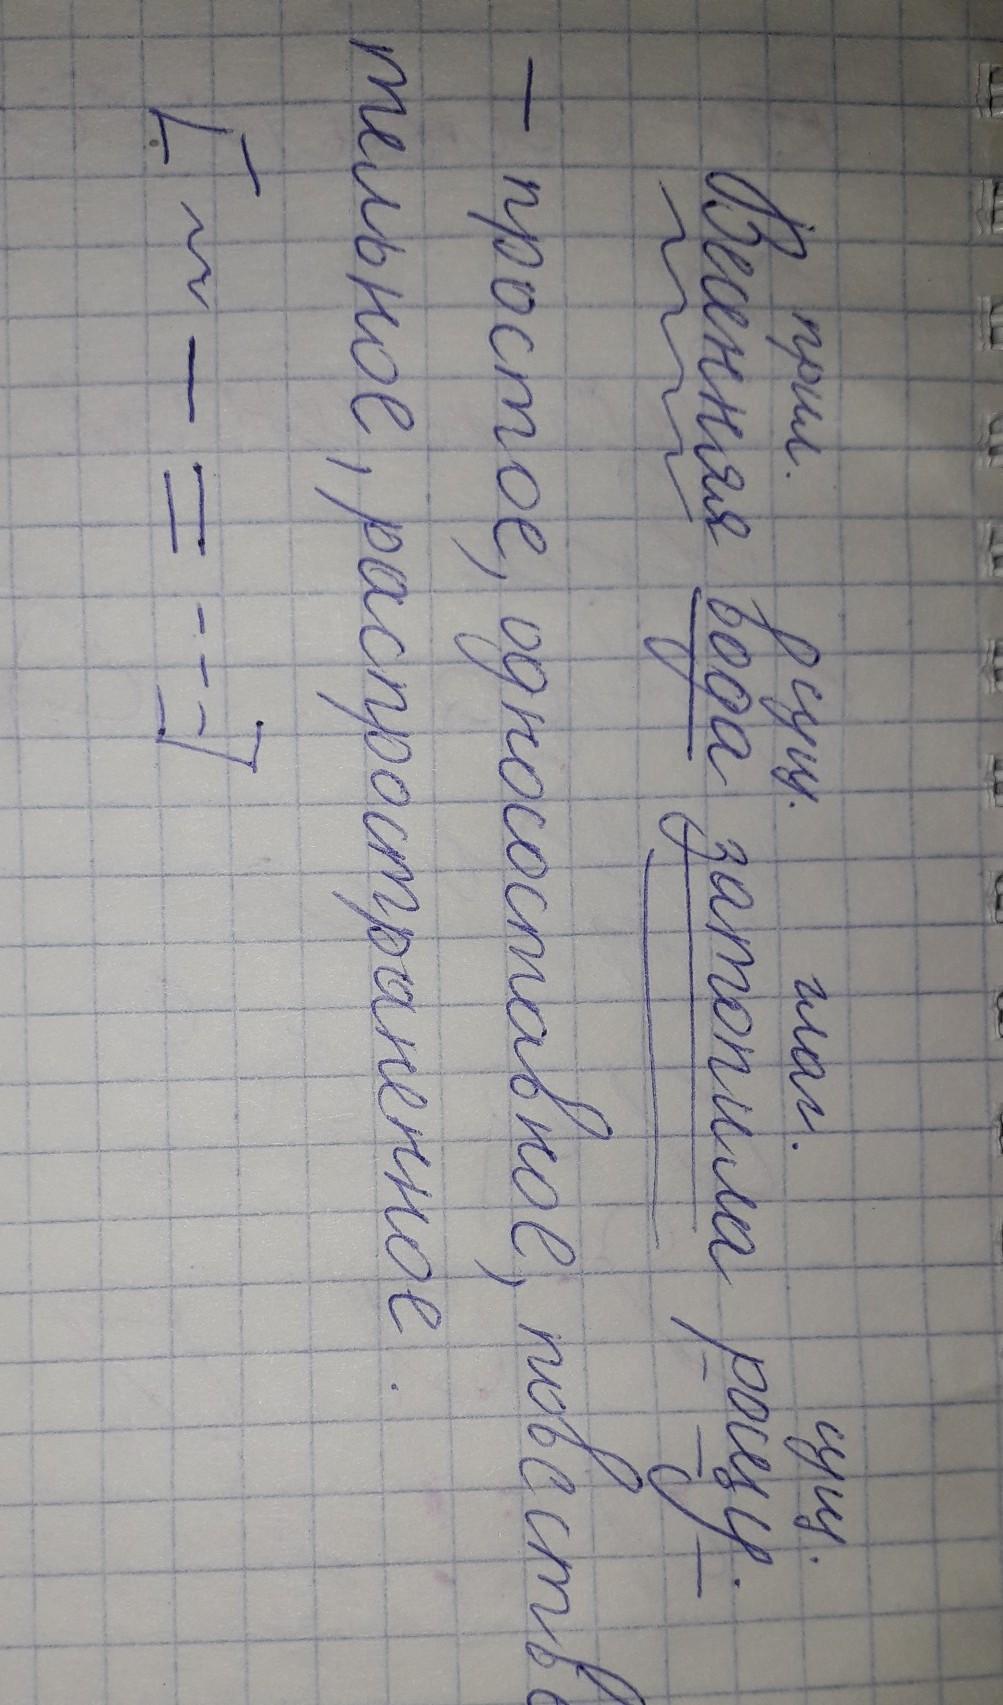 прил. сущ. глаг. сущ.
Весенняя вода затопила рощу.
– простое, односоставное, повество
тельное, распространенное.